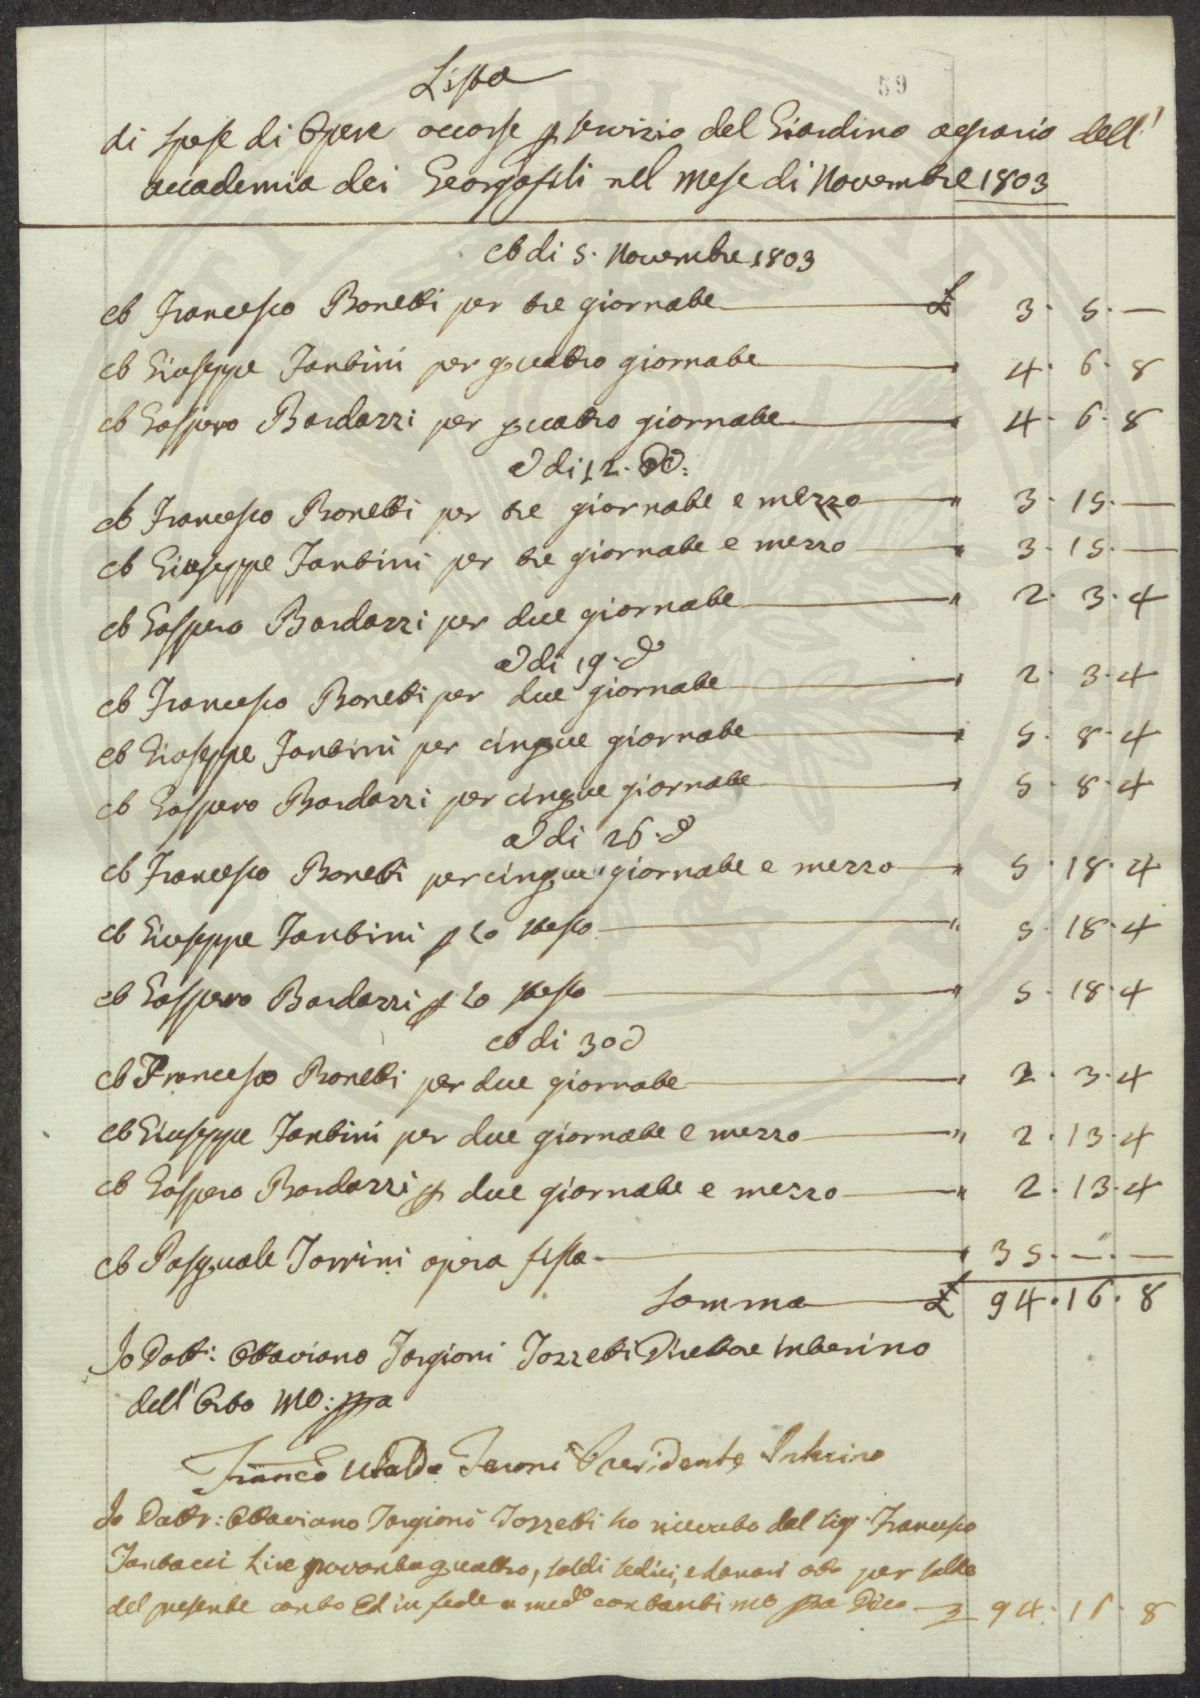 Lista
59
di spese di Opere occorse p servizio del Giardino agrario dell'
accademia dei Georgofili nel mese di Novembre 1803
A di 5. Novembre 1803
A Francesco Bonetti per tre giornate £ 3. 5. —
A Giuseppe Fantini per quattro giornate " 4. 6. 8
A Gaspero Bardazzi per quattro giornate " 4. 6. 8
A di 12. do:
A Francesco Bonetti per tre giornate e mezzo " 3. 15. —
A Giuseppe Fantini per tre giornate e mezzo " 3. 15. —
A Gaspero Bardazzi per due giornate " 2. 3. 4
A di 19. do
A Francesco Bonetti per due giornate " 2. 3. 4
A Giuseppe Fantini per cinque giornate " 5. 8. 4
A Gaspero Bardazzi per cinque giornate " 5. 8. 4
A di 26. do
A Francesco Bonetti per cinque giornate e mezzo " 5. 18. 4
A Giuseppe Fantini p lo stesso " 5. 18. 4
A Gaspero Bardazzi p lo stesso " 5. 18. 4
A di 30 do
A Francesco Bonetti per due giornate " 2. 3. 4
A Giuseppe Fantini per due giornate e mezzo " 2. 13. 4
A Gaspero Bardazzi p due giornate e mezzo " 2. 13. 4
A Pasquale Torrini opera fissa " 35. —. —
Somma £ 94. 16. 8
Io Dott: Ottaviano Targioni Tozzetti Direttore interino
dell'Orto mo: ppa
Franco Ubaldo Feroni Presidente Interino
Io Dottr: Ottaviano Targioni Tozzetti ho ricevuto dal Sigr Francesco
Lire novantaquattro, soldi sedici, e danari otto per saldo
del presente conto Ed in fede a medo contanti mo ppa Dico £ 94. 16. 8